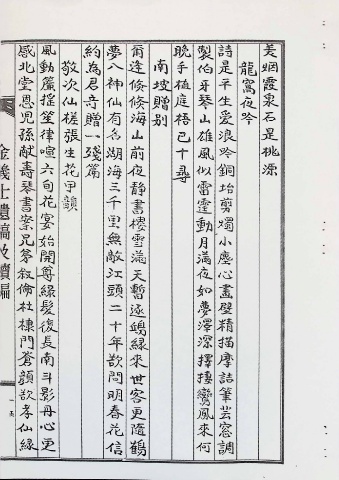 美烟霞泉石是桃源
龍窩夜吟
詩是平生愛浪吟銅坮剪燭小塵心畵壁精描摩詰筆芸窓調
製伯牙琴山雄風似雷霆動月滿夜如夢澤深擇捿鸞鳳來何
晩手植庭梧已十尋
南坡贈別
爾逢倏倏海山前夜靜書樓雪滿天暫逐鴻緣來世客更隨鶴
夢八神仙有名湖海三千里無敵江頭二十年欲問明春花信
約為君奇贈一殘篇
敬次仙槎張生花甲韻
風動簾搖笙律喧六旬花宴始開尊綠髮復長南斗影丹心更
感北堂恩兒孫獻壽琴書案兄弟叙倫杜棣門蒼顔欲孝仙緣
金義士遺稿攷續編